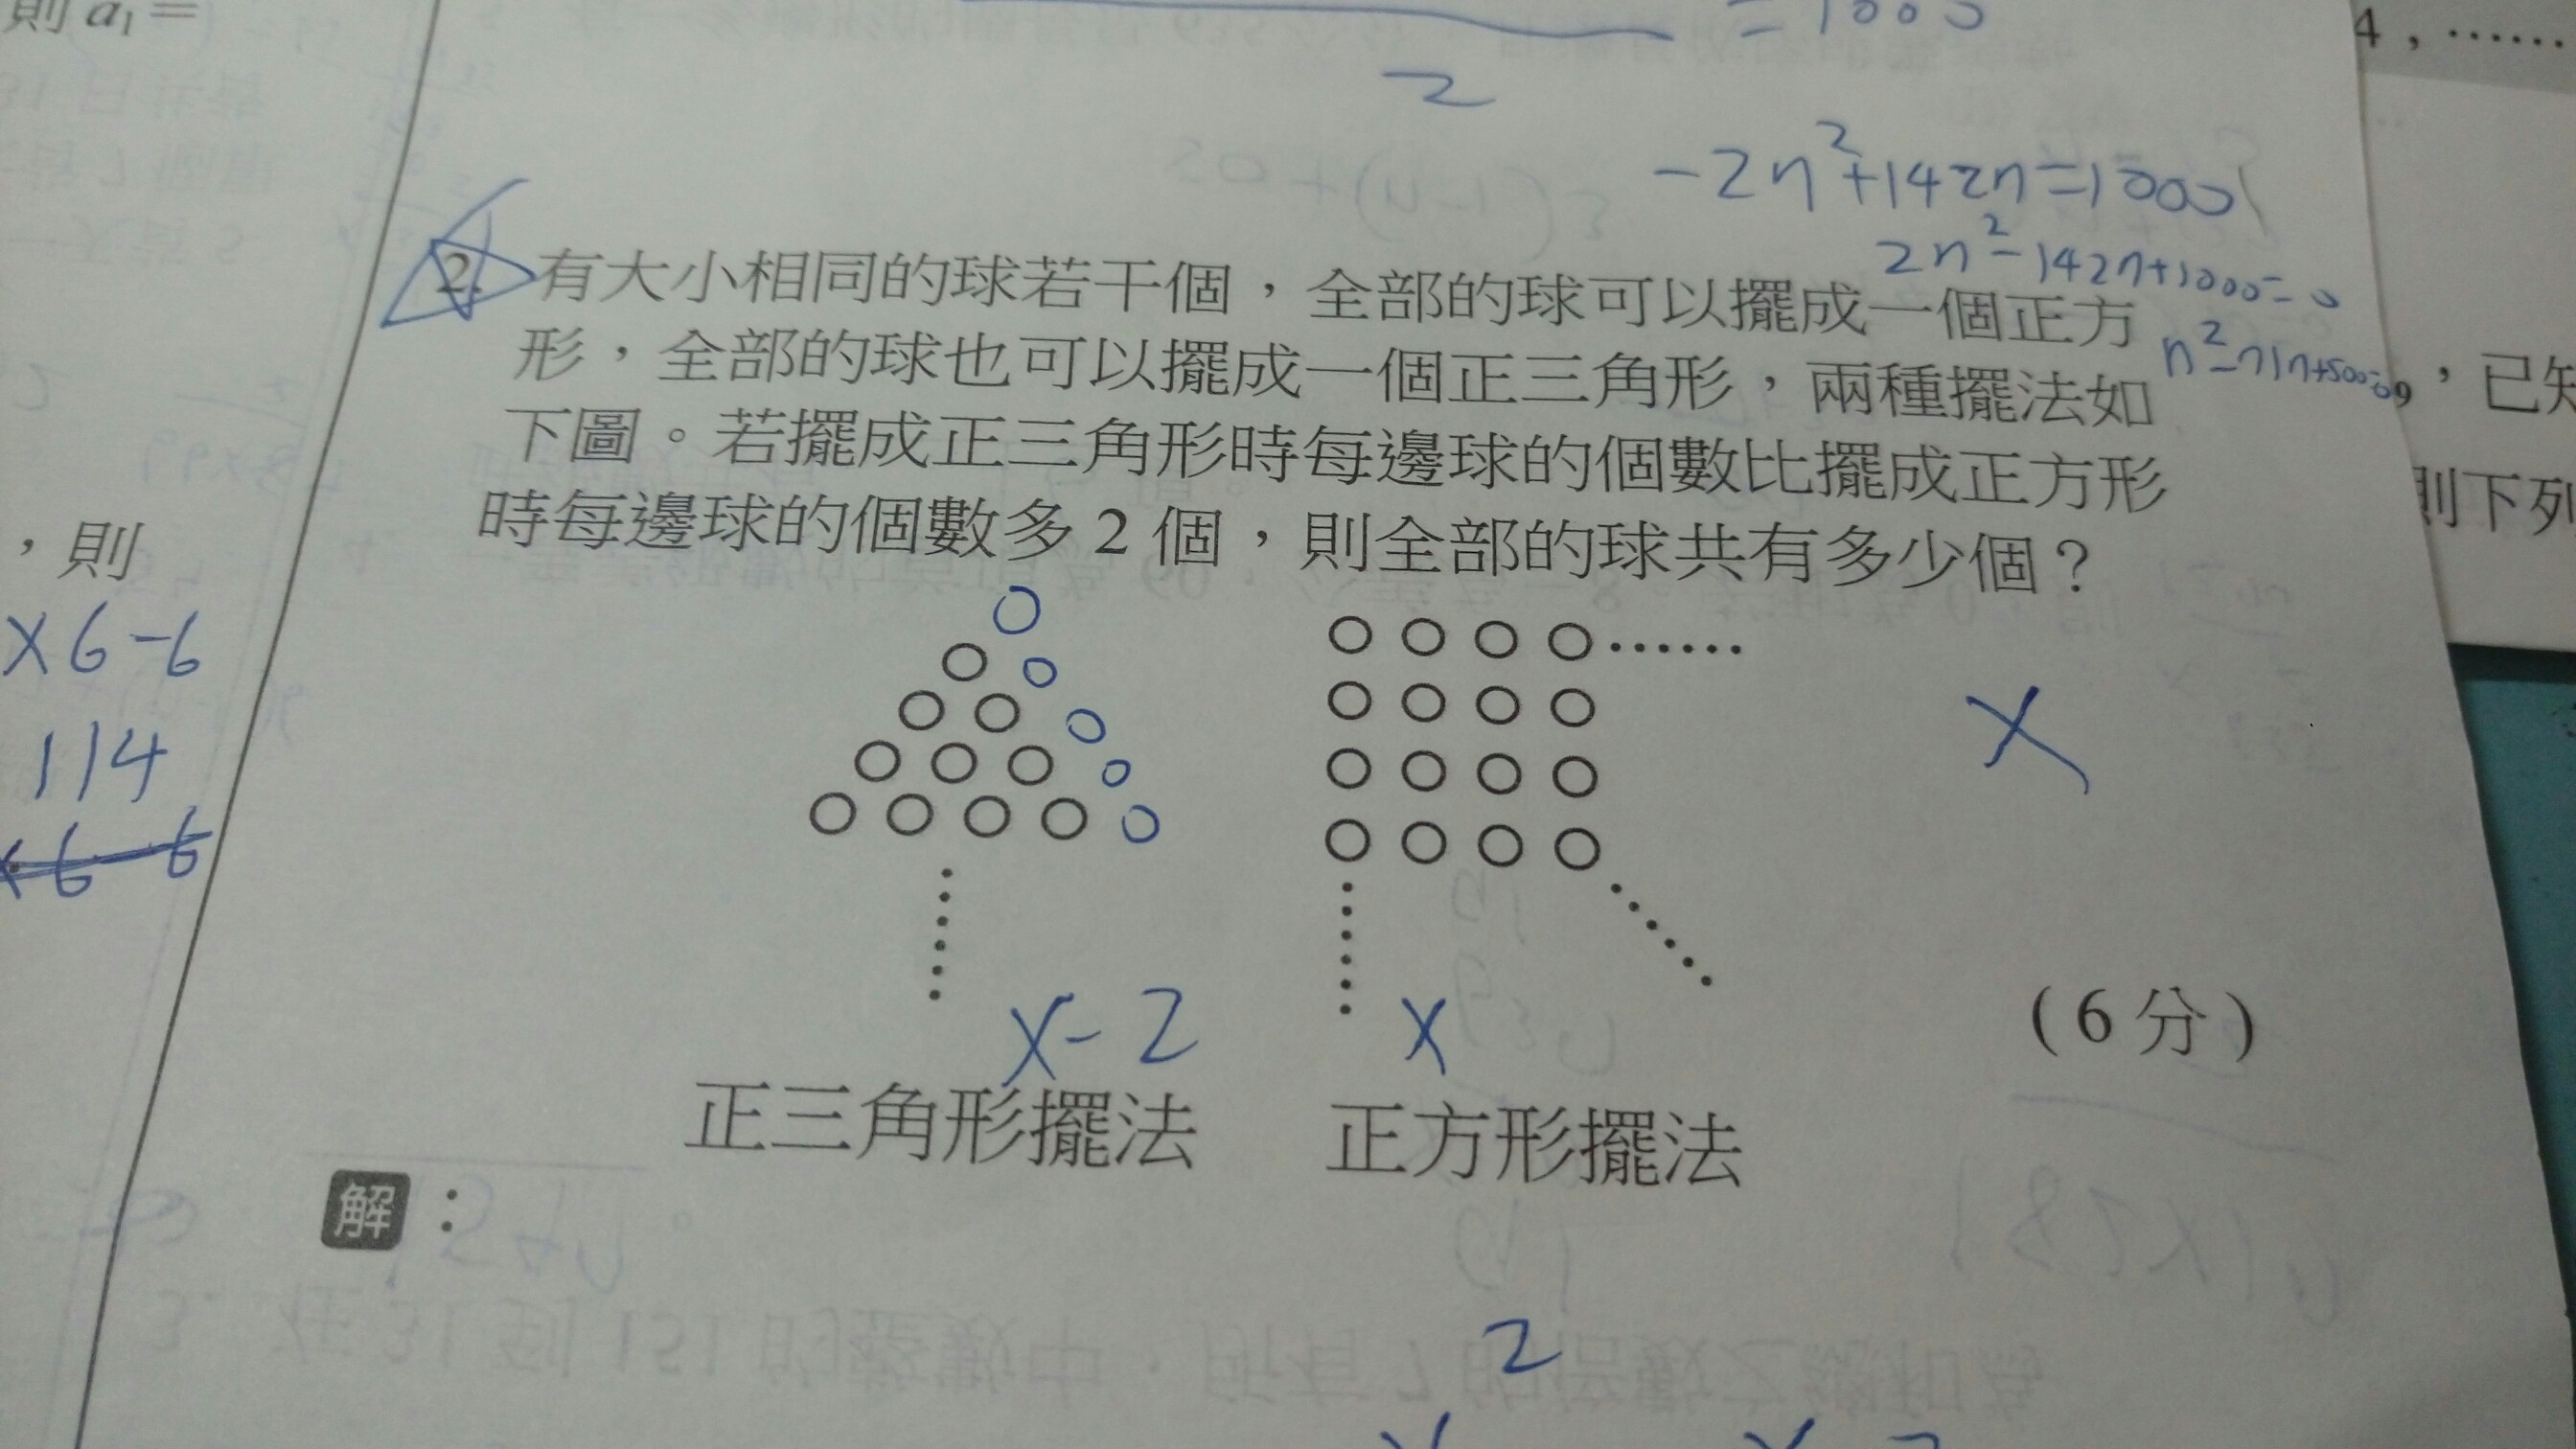 則 a₁=
= 1000
2
4,……
-2n²+142n=1000
2n²-142n+1000=0
n²-71n+500=0
2. 有大小相同的球若干個，全部的球可以擺成一個正方
形，全部的球也可以擺成一個正三角形，兩種擺法如
下圖。若擺成正三角形時每邊球的個數比擺成正方形
時每邊球的個數多 2 個，則全部的球共有多少個？
，已知
則下列
，則
x6-6
114
x
x-2
x
(6分)
正三角形擺法
正方形擺法
解：
2